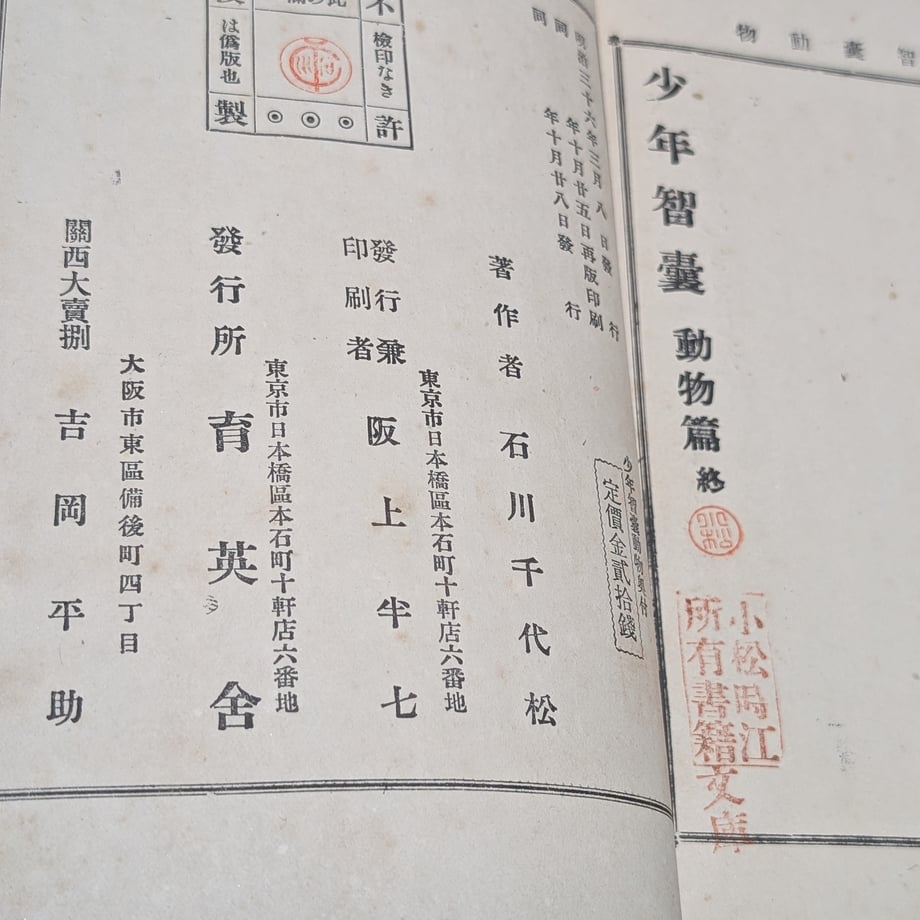 智囊動物
少年智囊 動物篇 終
小松
小松時江
所有書籍
文庫
少年智囊動物奥付
定價金貳拾錢
明治三十六年三月八日發行
同年十月廿五日再版印刷
同年十月廿八日發行
著作者 石川千代松
東京市日本橋區本石町十軒店六番地
發行兼
印刷者
阪上半七
東京市日本橋區本石町十軒店六番地
發行所 育英舍
大阪市東區備後町四丁目
關西大賣捌 吉岡平助
不許
檢印なき
は僞版也
製